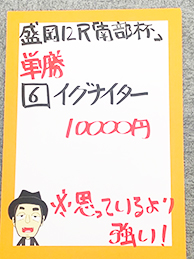 盛岡12R南部杯
単勝
6 イグナイター
10000円
※思っているより
強い!